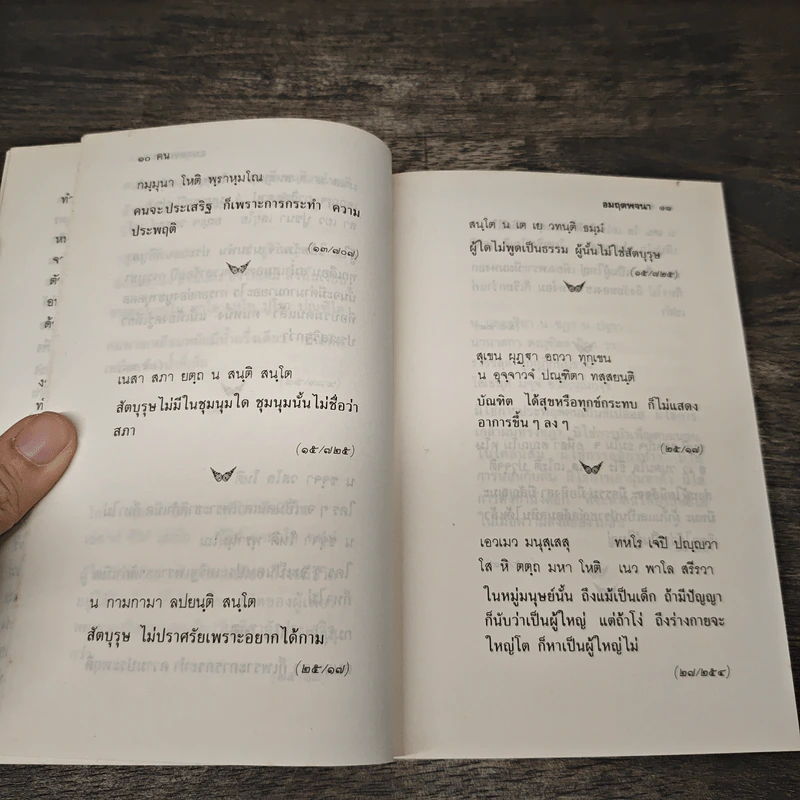 ๑๐ คน
กมฺมุนา โหติ พฺราหฺมโณ
คนจะประเสริฐ ก็เพราะการกระทำ ความ
ประพฤติ
(๑๓/๗๐๗)
เนสา สภา ยตฺถ น สนฺติ สนฺโต
สัตบุรุษไม่มีในชุมนุมใด ชุมนุมนั้นไม่ชื่อว่า
สภา
(๑๕/๗๒๕)
น กามกามา ลปยนฺติ สนฺโต
สัตบุรุษ ไม่ปราศรัยเพราะอยากได้กาม
(๒๕/๑๗)
อมฤตพจนา
สนฺโต น เต เย วทนฺติ ธมฺมํ
ผู้ใดไม่พูดเป็นธรรม ผู้นั้นไม่ใช่สัตบุรุษ
(๑๕/๗๒๕)
สุเขน ผุฏฺฐา อถวา ทุกฺเขน
น อุจฺจาวจํ ปณฺฑิตา ทสฺสยนฺติ
บัณฑิต ได้สุขหรือทุกข์กระทบ ก็ไม่แสดง
อาการขึ้น ๆ ลง ๆ
(๒๕/๑๗)
เอวเมว มนุสฺเสสุ ทหโร เจปิ ปญฺญวา
โส หิ ตตฺถ มหา โหติ เนว พาโล สรีรวา
ในหมู่มนุษย์นั้น ถึงแม้เป็นเด็ก ถ้ามีปัญญา
ก็นับว่าเป็นผู้ใหญ่ แต่ถ้าโง่ ถึงร่างกายจะ
ใหญ่โต ก็หาเป็นผู้ใหญ่ไม่
(๒๗/๒๕๔)